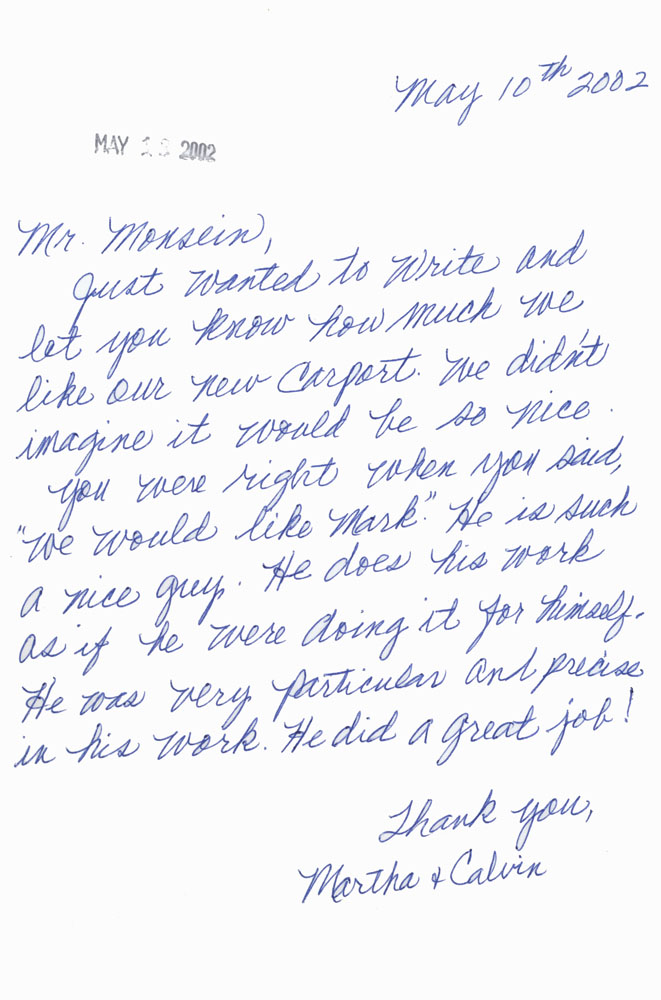 May 10th 2002
MAY 13 2002
Mr. Monsein,
Just wanted to write and
let you know how much we
like our new Carport. We didn't
imagine it would be so nice.
You were right when you said,
"we would like Mark". He is such
a nice guy. He does his work
as if he were doing it for himself.
He was very particular and precise
in his work. He did a great job!
Thank you,
Martha & Calvin